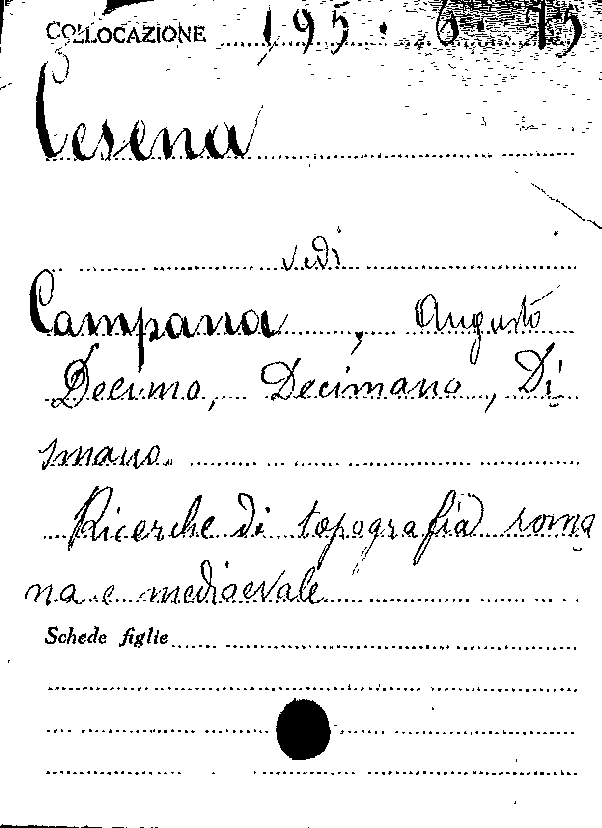 COLLOCAZIONE 195. 6. 15
Cesena
vedi
Campana, Augusto
Decimo, Decimano, Di
smano.
Ricerche di topografia roma
na e mediaevale
Schede figlie